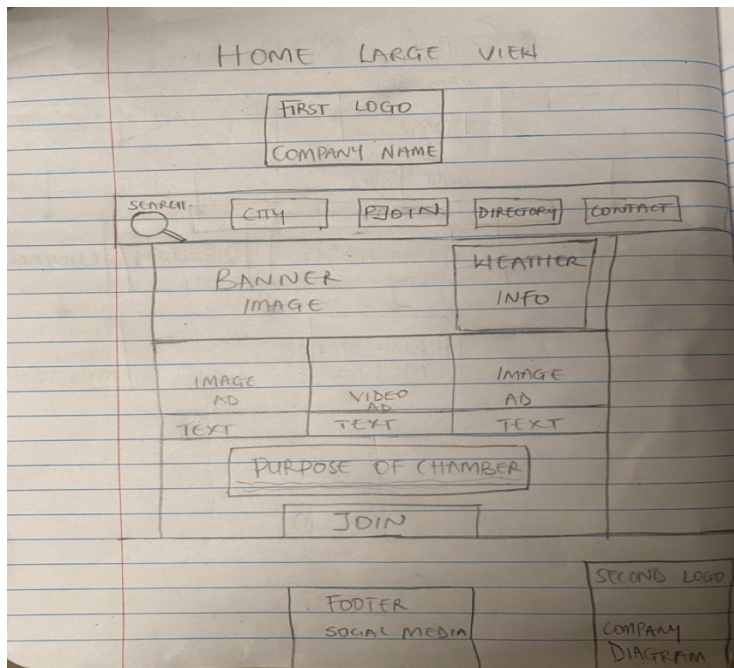 HOME LARGE VIEW
FIRST LOGO
COMPANY NAME
SEARCH.
CITY
JOIN
DIRECTORY
CONTACT
BANNER
IMAGE
WEATHER
INFO
IMAGE
AD
VIDEO
AD
IMAGE
AD
TEXT
TEXT
TEXT
PURPOSE OF CHAMBER
JOIN
FOOTER
SOCIAL MEDIA
SECOND LOGO
COMPANY
DIAGRAM